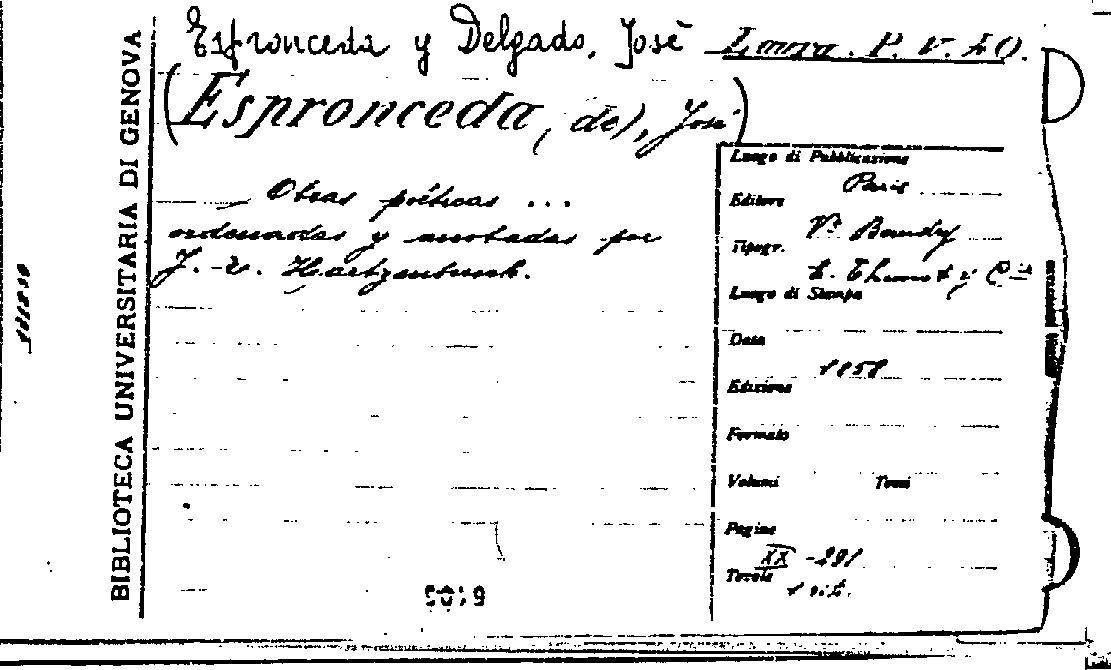 Espronceda y Delgado, José
Laura. P. V. 40.
(Espronceda, de), José)
BIBLIOTECA UNIVERSITARIA DI GENOVA
Obras poéticas ...
ordenadas y anotadas por
J. E. Hartzenbusch.
Luogo di Pubblicazione
Paris
Editore
Vª Baudry
Tipogr.
E. Thunot y Cia
Luogo di Stampa
Data
1858
Edizione
Formato
Volumi Tomi
Pagine
XX - 291
Tavole
1 rit.